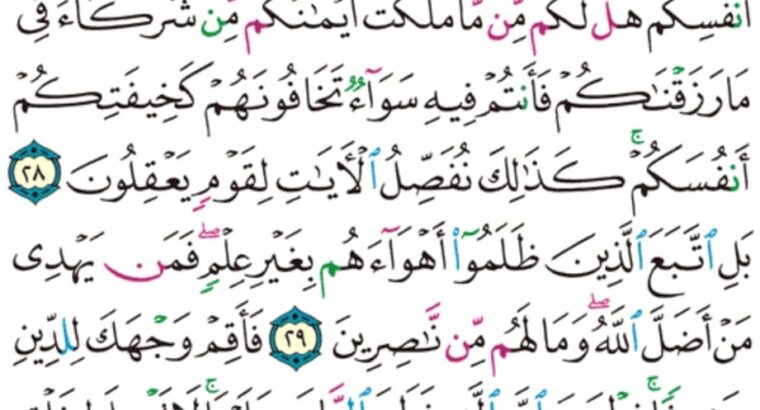 أَنفُسِكُمْ هَل لَّكُم مِّن مَّا مَلَكَتْ أَيْمَٰنُكُم مِّن شُرَكَآءَ فِى
مَا رَزَقْنَٰكُمْ فَأَنتُمْ فِيهِ سَوَآءٌ تَخَافُونَهُمْ كَخِيفَتِكُمْ
أَنفُسَكُمْ ۚ كَذَٰلِكَ نُفَصِّلُ ٱلْأَيَٰتِ لِقَوْمٍ يَعْقِلُونَ ٢٨
بَلِ ٱتَّبَعَ ٱلَّذِينَ ظَلَمُوٓا۟ أَهْوَآءَهُم بِغَيْرِ عِلْمٍ ۖ فَمَن يَهْدِى
مَنْ أَضَلَّ ٱللَّهُ ۖ وَمَا لَهُم مِّن نَّٰصِرِينَ ٢٩ فَأَقِمْ وَجْهَكَ لِلدِّينِ